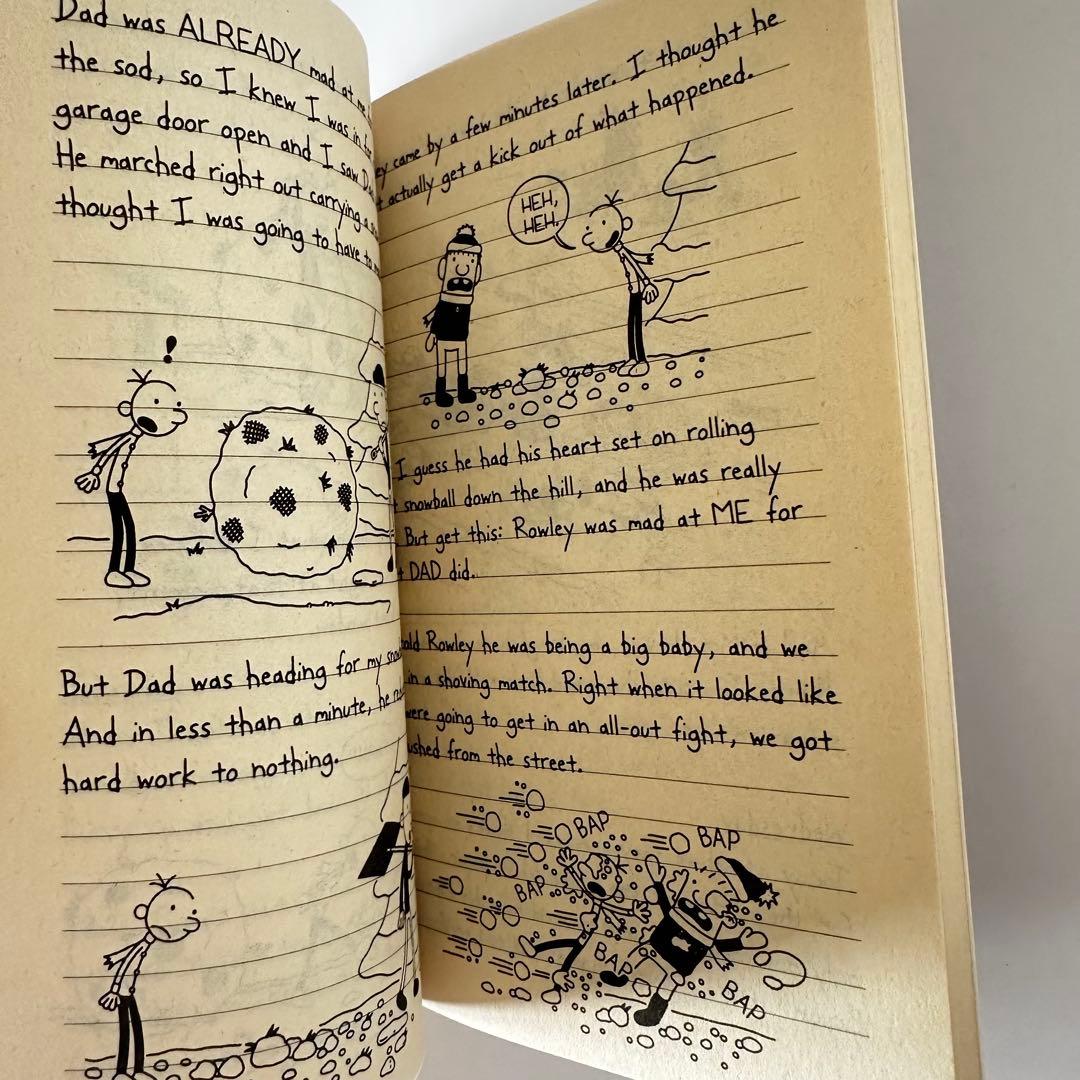 Dad was ALREADY mad at me
the sod, so I knew I was in for
garage door open and I saw
He marched right out carrying a
thought I was going to have to
!
But Dad was heading for my
And in less than a minute, he
hard work to nothing.
came by a few minutes later. I thought he
actually get a kick out of what happened.
HEH,
HEH.
I guess he had his heart set on rolling
snowball down the hill, and he was really
But get this: Rowley was mad at ME for
DAD did.
Rowley he was being a big baby, and we
in a shoving match. Right when it looked like
were going to get in an all-out fight, we got
from the street.
BAP
BAP
BAP
BAP
BAP